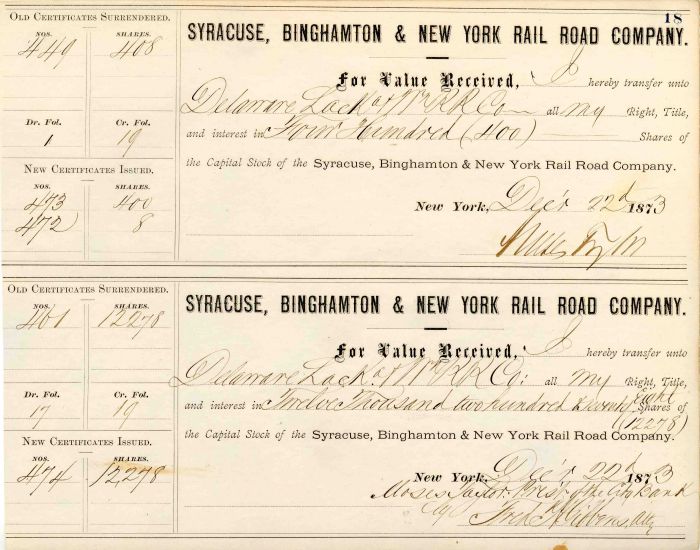 18
Old Certificates Surrendered.
Nos. Shares.
449 408
Dr. Fol. Cr. Fol.
1 19
New Certificates Issued.
Nos. Shares.
473 400
472 8
SYRACUSE, BINGHAMTON & NEW YORK RAIL ROAD COMPANY.
For Value Received, I hereby transfer unto
Delaware Lacka & W RR Co all my Right, Title,
and interest in Four Hundred (400) Shares of
the Capital Stock of the Syracuse, Binghamton & New York Rail Road Company.
New York, Dec'r 22d 1873
Old Certificates Surrendered.
Nos. Shares.
461 12278
Dr. Fol. Cr. Fol.
17 19
New Certificates Issued.
Nos. Shares.
474 12278
SYRACUSE, BINGHAMTON & NEW YORK RAIL ROAD COMPANY.
For Value Received, I hereby transfer unto
Delaware Lacka & W RR Co: all my Right, Title,
and interest in Twelve Thousand two hundred seventy Eight Shares of
(12278)
the Capital Stock of the Syracuse, Binghamton & New York Rail Road Company.
New York, Dec'r 22d 1873
Moses Taylor Prest of the City Bank
By Fred H Gibbens, Atty